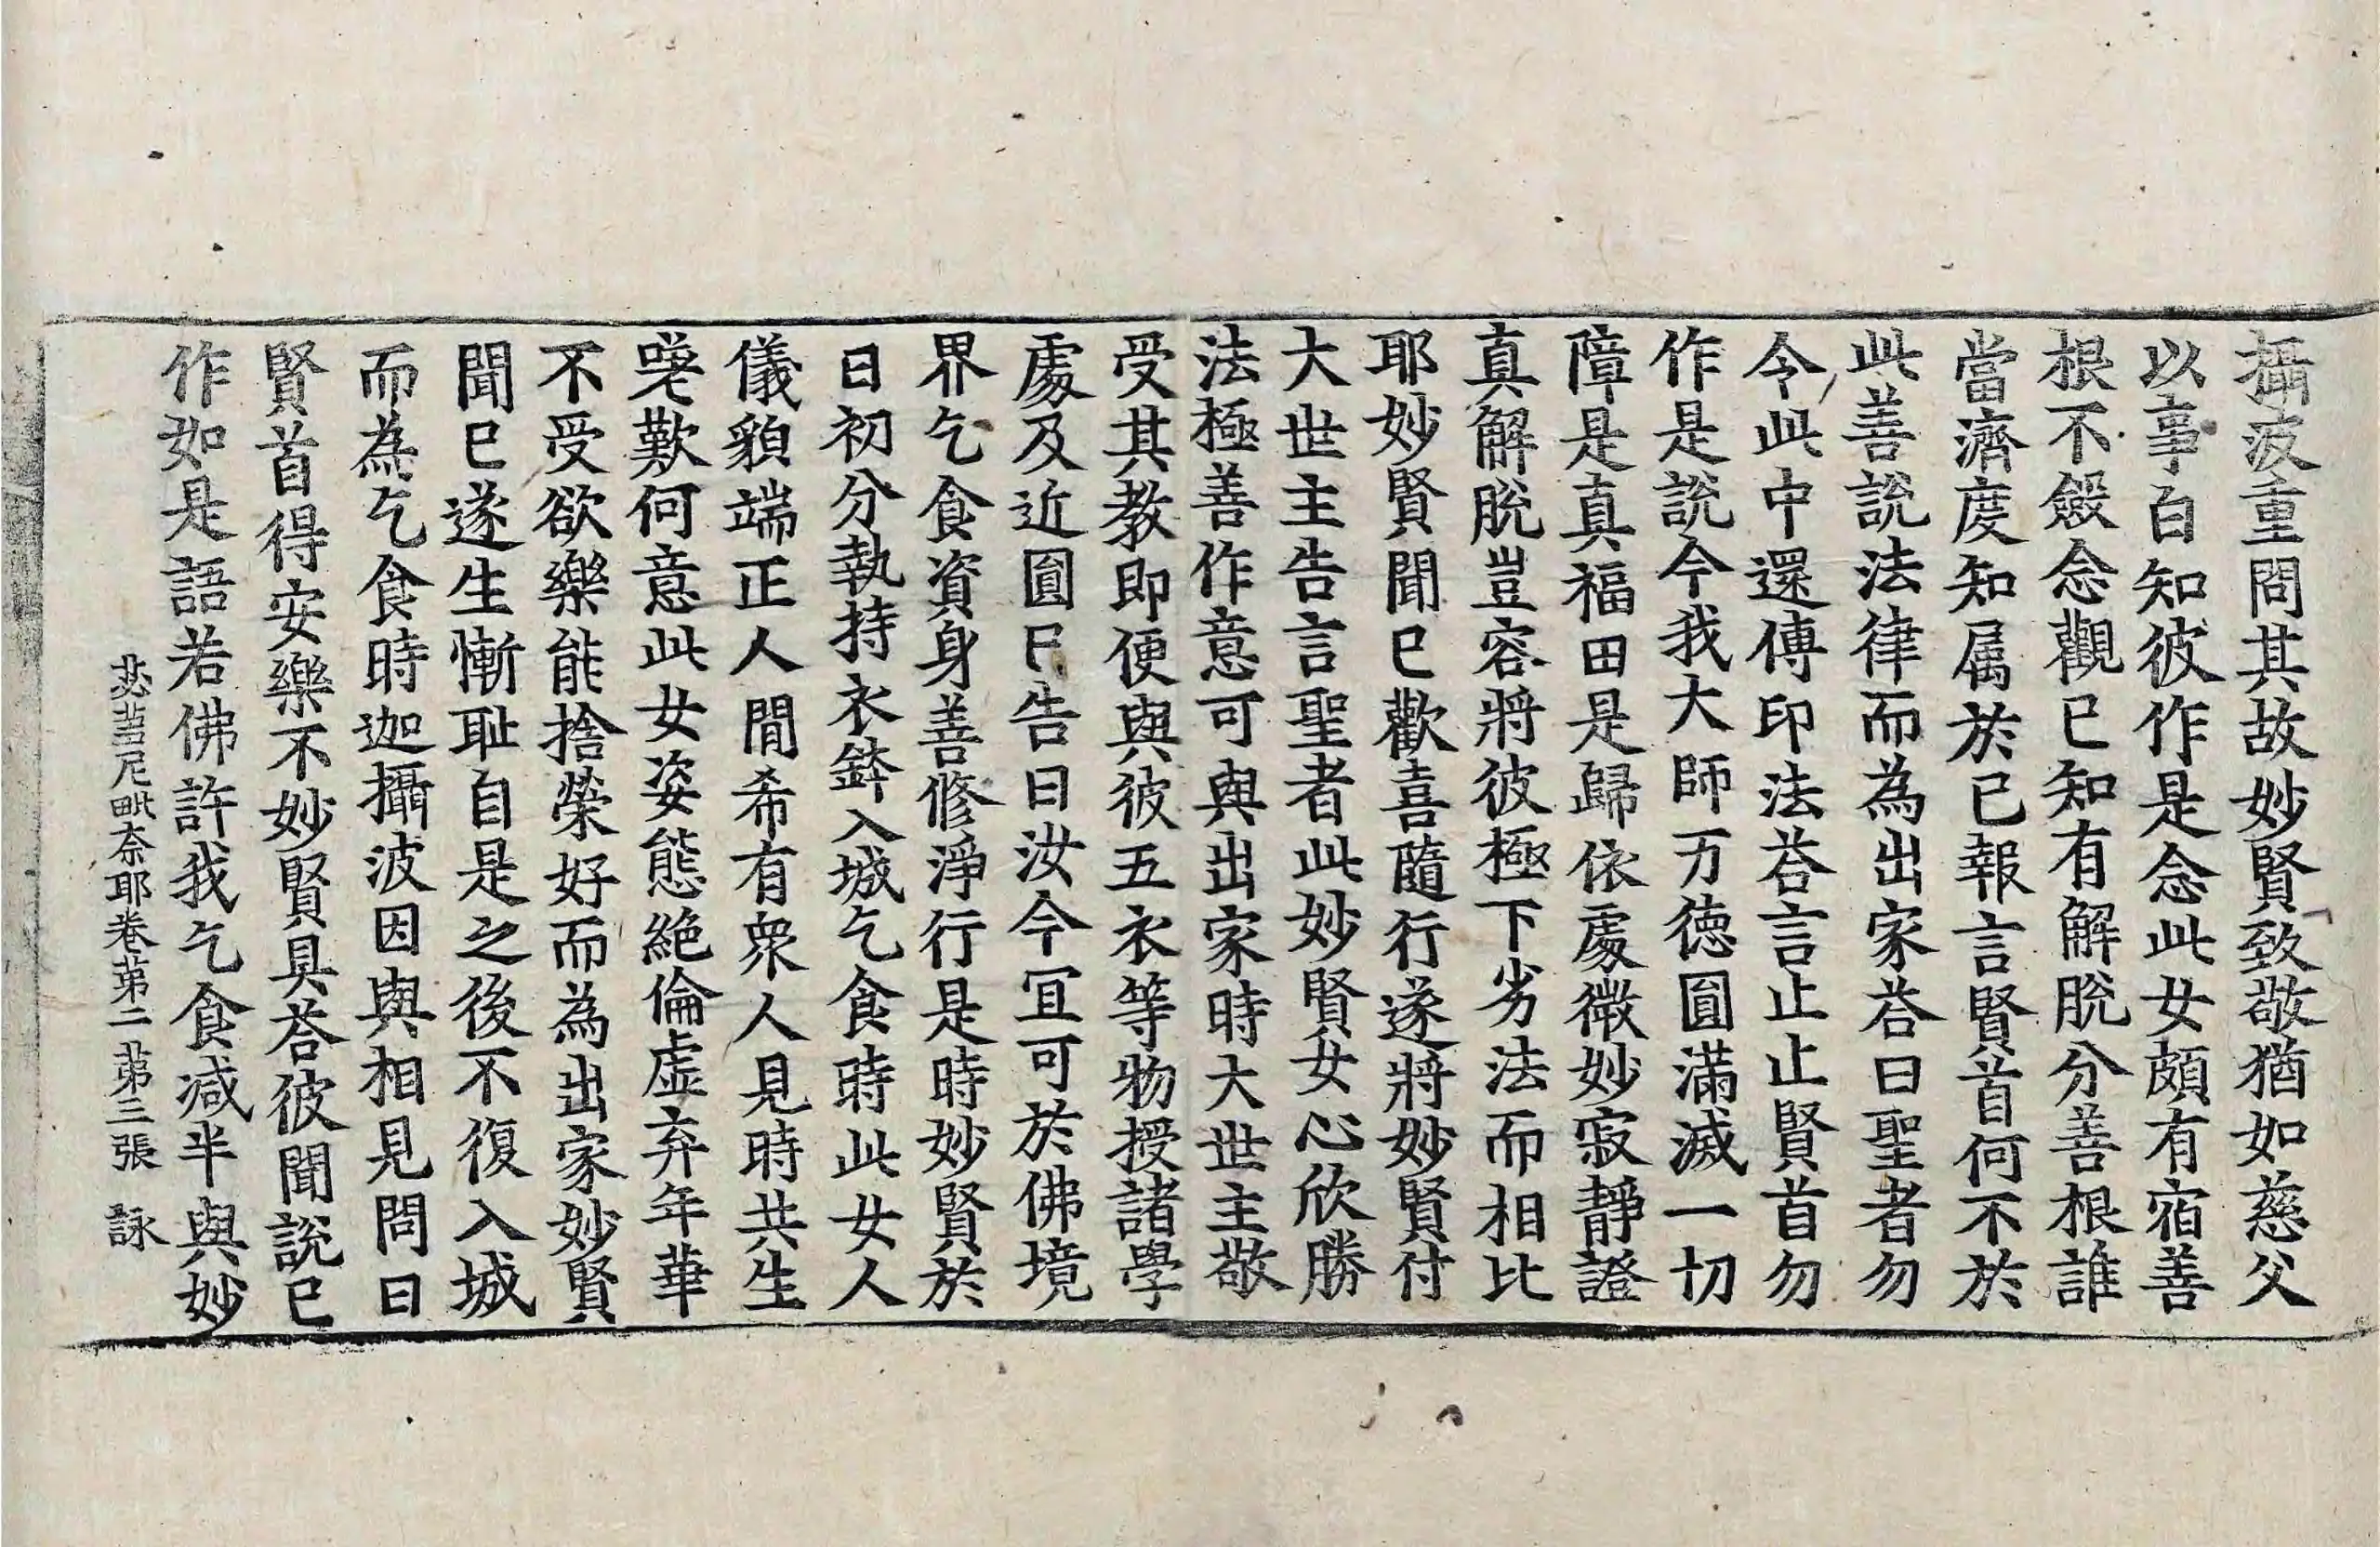 攝波重問其故妙賢致敬猶如慈父
以事白知彼作是念此女頗有宿善
根不斂念觀已知有解脫分善根誰
當濟度知属於已報言賢首何不於
此善說法律而為出家荅曰聖者勿
令此中還傳印法荅言止止賢首勿
作是說今我大師万徳圎滿滅一切
障是真福田是歸依處微妙寂靜證
真解脫豈容將彼極下劣法而相比
耶妙賢聞已歡喜隨行遂將妙賢付
大世主告言聖者此妙賢女心欣勝
法極善作意可與出家時大世主敬
受其教即便與彼五衣等物授諸學
處及近圎已告曰汝今冝可於佛境
界乞食資身善修淨行是時妙賢於
日初分執持衣鉢入城乞食時此女人
儀貌端正人間希有衆人見時共生
嗟歎何意此女姿態絕倫虛弃年華
不受欲樂能捨榮好而為出家妙賢
聞已遂生慚耻自是之後不復入城
而為乞食時迦攝波因與相見問曰
賢首得安樂不妙賢具荅彼聞說已
作如是語若佛許我乞食减半與妙
苾蒭尼毗奈耶卷苐二 苐三張 詠